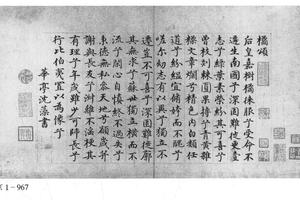 橘頌
后皇嘉樹橘徠服兮受命不
遷生南國兮深固難徙更壹
志兮綠葉素榮紛其可喜兮
曾枝剡棘圓果摶兮青黃雜
糅文章爛兮精色內白類任
道兮紛緼宜脩姱而不醜兮
嗟尔幼志有以異兮獨立不
遷豈不可喜兮深固難徙廓
其無求兮蘇世獨立橫而不
流兮閉心自慎終不過失兮
秉德無私參天地兮願歲并
謝與長友兮淑離不淫梗其
有理兮年歲雖少可師長兮
行比伯夷置以為像兮
華亭沈藻書
1-967